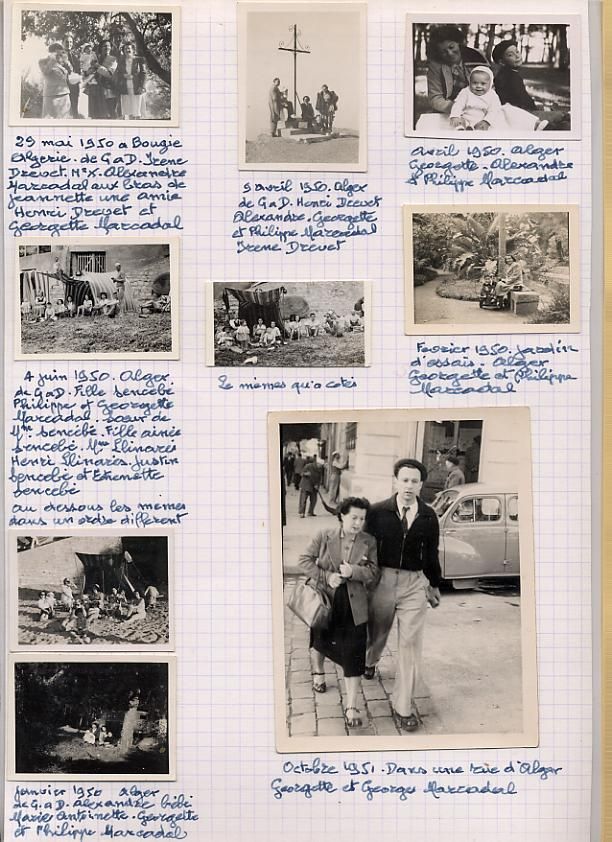 29 mai 1950 a Bougie
Algerie. de G a D. Irene
Drevet. Mr X. Alexandre
Marcadal aux bras de
Jeannette une amie
Henri Drevet et
Georgette Marcadal
9 avril 1950. Alger
de G a D. Henri Drevet
Alexandre. Georgette
et Philippe Marcadal
Irene Drevet
avril 1950. Alger
Georgette. Alexandre
et Philippe Marcadal
4 juin 1950. Alger
de G a D. Fille Sencebé
Philippe et Georgette
Marcadal. soeur de
Mme Sencebé. Fille ainée
Sencebé. Mme Llinares
Henri Llinares. Justin
Sencebé et Etiennette
Sencebé
au dessous les memes
dans un ordre different
Le memes qu'a cotés
Fevrier 1950. Jardin
d'essais. Alger
Georgette et Philippe
Marcadal
Janvier 1950 Alger
de G. a D. Alexandre bébé
Marie Antoinette. Georgette
et Philippe Marcadal
Octobre 1951. Dans une rue d'Alger
Georgette et Georges Marcadal